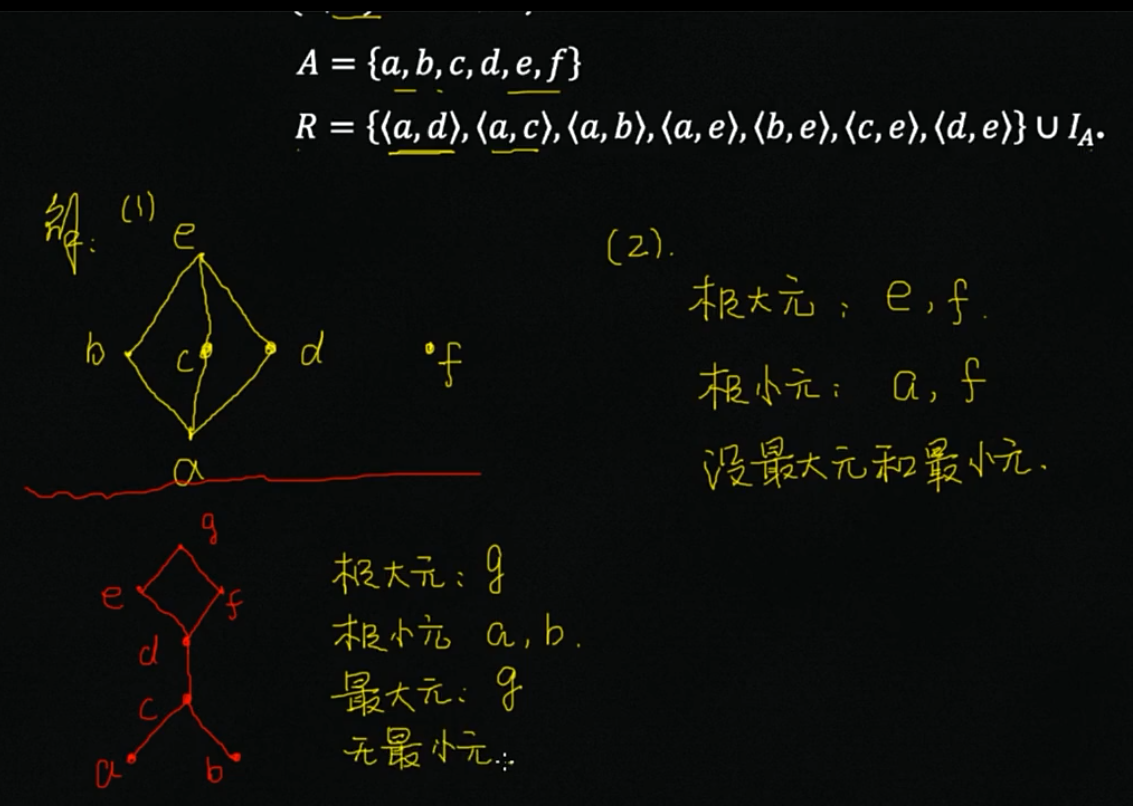 A = {a, b, c, d, e, f}
R = {⟨a, d⟩, ⟨a, c⟩, ⟨a, b⟩, ⟨a, e⟩, ⟨b, e⟩, ⟨c, e⟩, ⟨d, e⟩} ∪ I_A.
解: (1)
e
b c d f
a
(2).
极大元: e, f.
极小元: a, f
没最大元和最小元.
g
e f
d
c
a b
极大元: g
极小元 a, b.
最大元: g
无最小元.